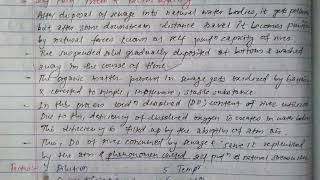 After disposal of sewage into natural water bodies, it gets pollut
but after some downstream distance travel it becomes purified
by natural forces known as self purifn capacity of river.
The suspended solid gradually deposited at bottom & washed
away in the course of time
- The organic matter present in sewage gets oxidized by bacteria
& converted to simple, inoffensive, stable substance
- In this process lot of dissolved (DO) content of river utilized
Due to this, deficiency of dissolved oxygen is created in water body
This deficiency is filled up by the absorption of atm air.
- Thus, DO of river consumed by sewage & since it replenished
by the atm & phenomenon called self purifn of natural streams
Factors
1) Dilution 5 Temp